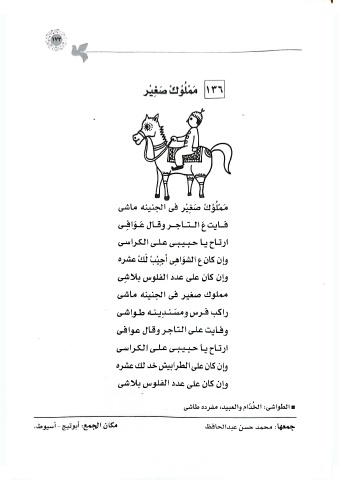 ١٢٢
١٣٦ مَمْلُوْكْ صَغِيْر
مَمْلُوْكْ صَغِيْر فى الجنينه ماشى
فايت عَ التاجر وقال عَوَافِى
ارتاح يا حبيبى على الكراسى
وإن كان عَ الشواهِى أجيْبْ لَكْ عشره
وإن كان على عدد الفلوس بلاشى
مملوك صغير فى الجنينه ماشى
راكب فرس ومسَندينه طواشى
وفايت على التاجر وقال عوافى
ارتاح يا حبيبى على الكراسى
وإن كان على الطرابيش خد لك عشره
وإن كان على عدد الفلوس بلاشى
■ الطواشى: الخُدّام والعبيد، مفرده طاشى
جمعها: محمد حسن عبدالحافظ
مكان الجمع: أبوتيج - أسيوط.